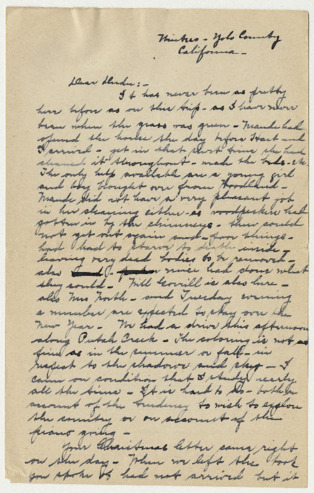 Winters - Yolo County
California -
Dear :-
It has never been so pretty
here before as on this trip - as I have never
been when the grass was green - Maude had
opened the house the day before Hart and
I arrived - yet in that short time she had
cleaned it throughout - made the beds - etc
The only help available are a young girl
and boy brought over from Woodland -
Maude did not have a very pleasant job
in her cleaning either - as woodpeckers had
gotten in by the chimneys - then could
not get out again and poor things -
had had to starve to death inside -
leaving very dead bodies to be removed -
also never had done what
they could - Will Gorrill is also here -
also Mrs North - and Tuesday evening
a number are expected to stay over the
New Year - We had a drive this afternoon
along Putah Creek - The coloring is not as
fine as in the summer or fall - in
respect to the shadows and sky - I
came on condition that I study nearly
all the time - It is hard to do - both on
account of the tendency to wish to explore
the country or on account of the
piano going -
Your Christmas letter came right
on the day - When we left the book
you spoke of had not arrived but it